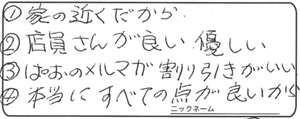 ①家の近くだから
②店員さんが良い 優しい
③ぱおのメルマが割り引きがいい
④本当にすべての点が良いから
ニックネーム